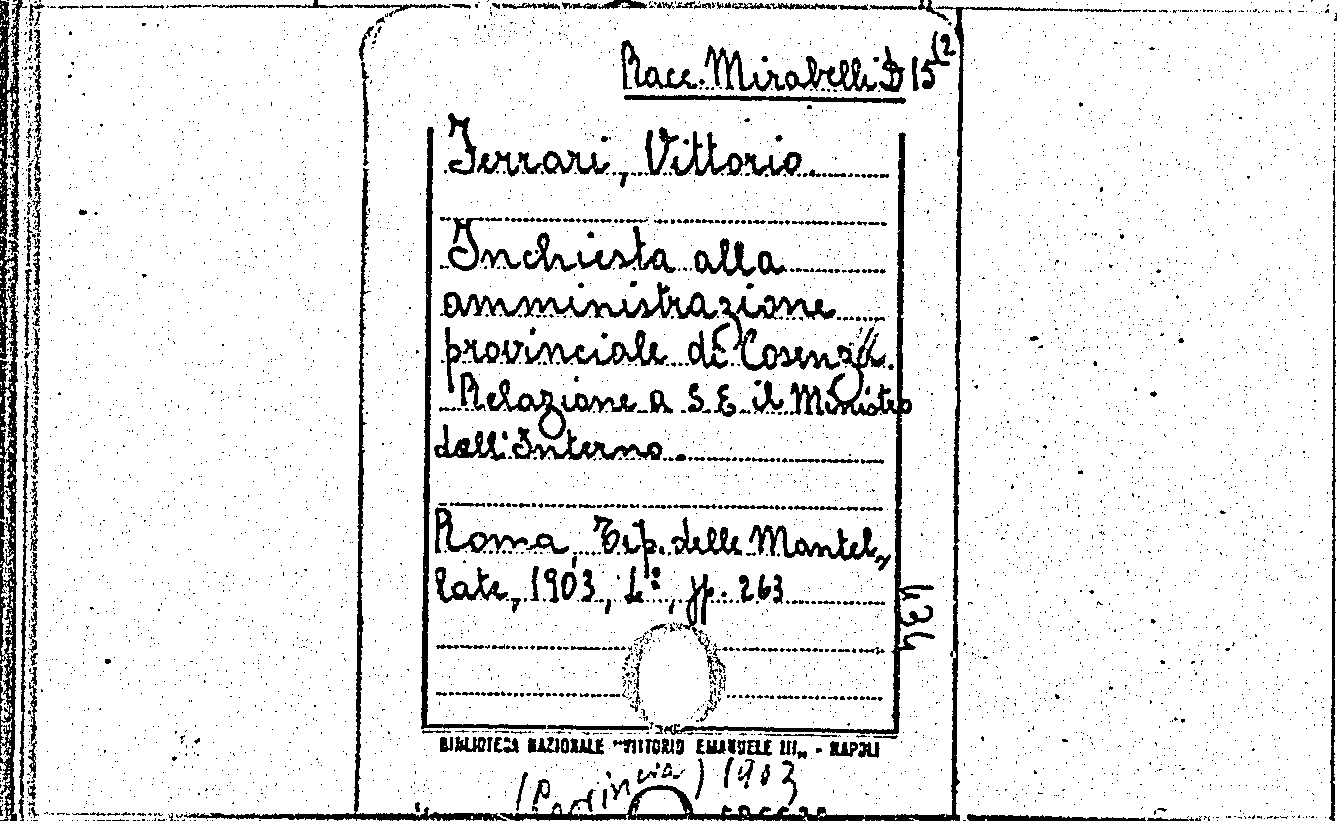 Racc. Mirabelli D 15 (2
Ferrari, Vittorio.
Inchiesta alla
amministrazione
provinciale di Cosenza.
Relazione a S. E. il Ministro
dell'Interno.
Roma, Tip. delle Mantel„
late, 1903, 4°, pp. 263
434
BIBLIOTECA NAZIONALE "VITTORIO EMANUELE III„ - NAPOLI
(Provincia) 1903